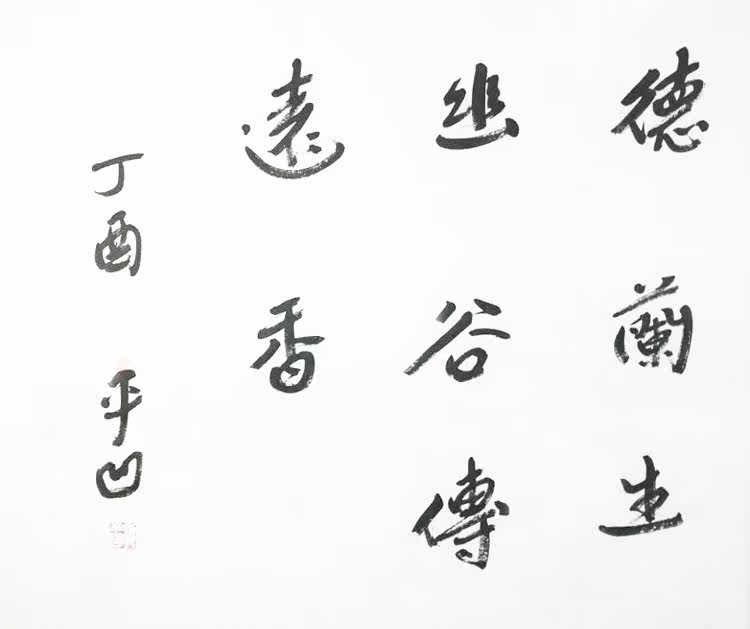 德蘭生
幽谷傳
遠香
丁酉 平凹